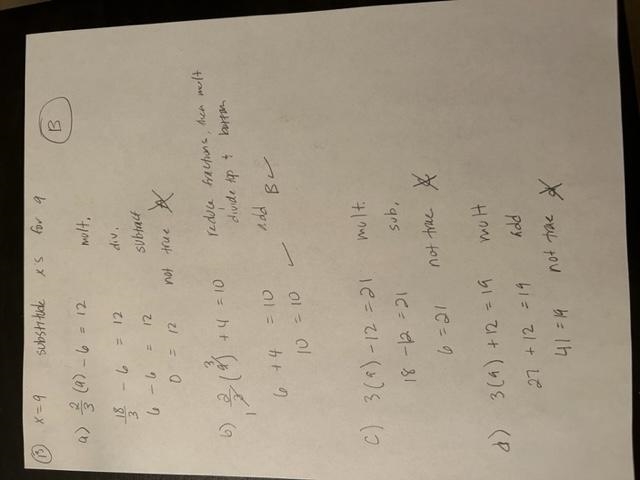 13 x = 9 substitute x's for 9 B
a) 2/3 (9) - 6 = 12 mult.
18/3 - 6 = 12 div.
6 - 6 = 12 subtract
0 = 12 not true
b) 2/3 (9) + 4 = 10 reduce fractions, then mult
1 3 divide top & bottom
6 + 4 = 10 add B ✓
10 = 10 ✓
c) 3(9) - 12 = 21 mult.
18 - 12 = 21 sub.
6 = 21 not true
d) 3(9) + 12 = 19 mult
27 + 12 = 19 add
41 = 19 not true